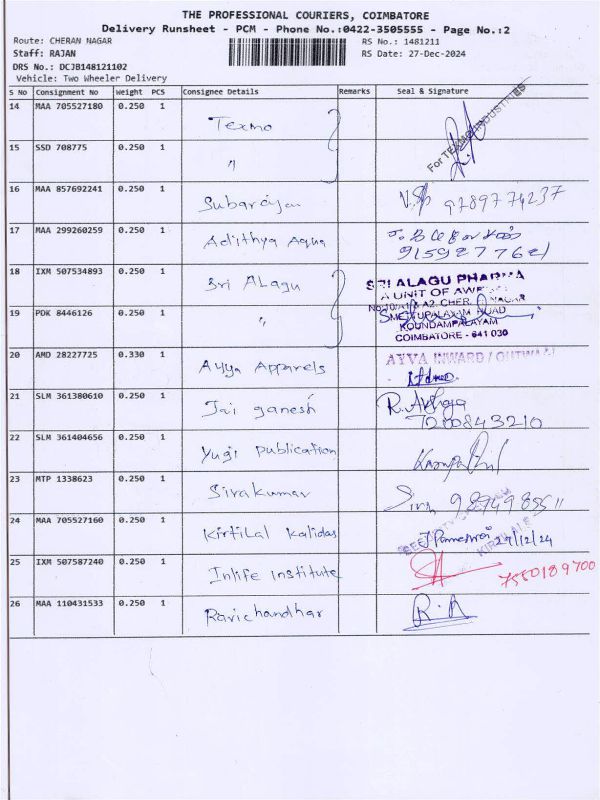 THE PROFESSIONAL COURIERS, COIMBATORE
Delivery Runsheet - PCM - Phone No.:0422-3505555 - Page No.:2
Route: CHERAN NAGAR RS No.: 1481211
Staff: RAJAN RS Date: 27-Dec-2024
DRS No.: DCJB148121102
Vehicle: Two Wheeler Delivery
S No Consignment No Weight PCS Consignee Details Remarks Seal & Signature
14 MAA 705527180 0.250 1 Texmo
For TEXMO INDUSTRIES
15 SSD 708775 0.250 1 "
16 MAA 857692241 0.250 1 Subarajan 9789774237
17 MAA 299260259 0.250 1 Adithya Aqua
9159277621
18 IXM 507534893 0.250 1 Sri ALagu SRI ALAGU PHARMA
A UNIT OF
19 PDK 8446126 0.250 1 "
KOUNDAMPALAYAM
COIMBATORE - 641 030
20 AMD 28227725 0.330 1 Ayya Apparels AYYA INWARD / OUTWARD
21 SLM 361380610 0.250 1 Jai ganesh
7200843210
22 SLM 361404656 0.250 1 Yugi publication
23 MTP 1338623 0.250 1 Sivakumar
24 MAA 705527160 0.250 1 Kirtilal Kalidas 27/12/24
25 IXM 507587240 0.250 1 Inlife institute 7550189700
26 MAA 110431533 0.250 1 Ravichandhar R.A